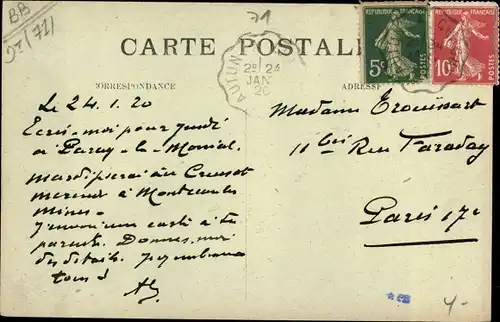 BB
71
(71)
CARTE POSTALE
CORRESPONDANCE
ADRESSE
REPUBLIQUE FRANÇAISE
5c
POSTES
REPUBLIQUE FRANÇAISE
10c
POSTES
AUTUN
2º 24
JAN
20
Le 24.1.20
Ecris-moi pour jeudi
à Paray-le-Monial.
Mardi serai au Creusot
mercredi à Montceau les
Mines.
carte à tes
parents. Donnes-moi
des détails.
tous
Madame Trouissart
11 bis Rue Faraday
Paris 17e
4-